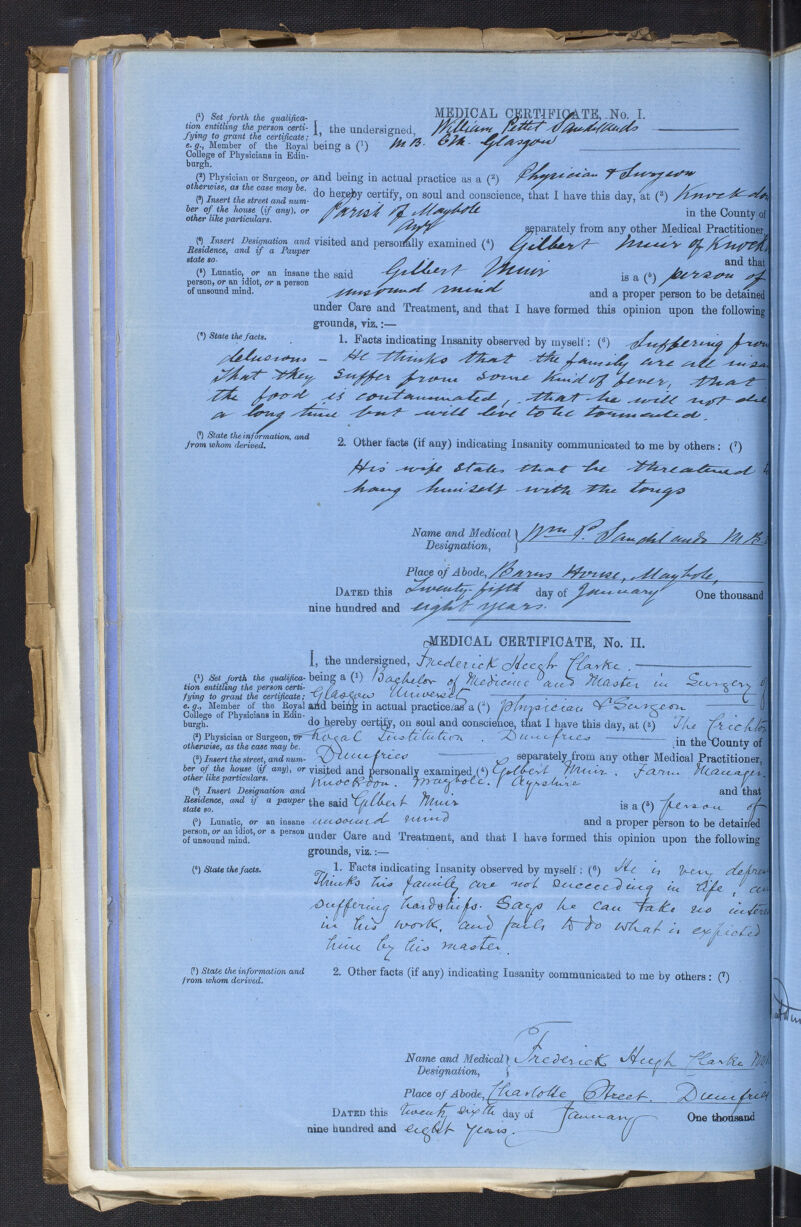 MEDICAL CERTIFICATE, No. I.
(¹) Set forth the qualifica-
tion entitling the person certi-
fying to grant the certificate;
e. g., Member of the Royal
College of Physicians in Edin-
burgh.
I, the undersigned, William Pettet Sandilands
being a (¹) M.B. C.M. Glasgow
(²) Physician or Surgeon, or
otherwise, as the case may be.
and being in actual practice as a (²) Physician & Surgeon
(³) Insert the street and num-
ber of the house (if any), or
other like particulars.
do hereby certify, on soul and conscience, that I have this day, at (³) Knockdo
Parish of Maybole in the County of
Ayr separately from any other Medical Practitioner
(⁴) Insert Designation and
Residence, and if a Pauper
state so.
visited and personally examined (⁴) Gilbert Muir of Knock
and that
(⁵) Lunatic, or an insane
person, or an idiot, or a person
of unsound mind.
the said Gilbert Muir is a (⁵) person of
unsound mind and a proper person to be detained
under Care and Treatment, and that I have formed this opinion upon the following
grounds, viz.:—
(⁶) State the facts.
1. Facts indicating Insanity observed by myself: (⁶) Suffering from
delusions - He thinks that the family are all insa
that they suffer from some kind of fever, that
the food is contaminated, that he will not die
a long time but will live to be tormented.
(⁷) State the information, and
from whom derived.
2. Other facts (if any) indicating Insanity communicated to me by others: (⁷)
His wife states that he threatened
hang himself with the tongs
Name and Medical
Designation, Wm P. Sandilands M.B.
Place of Abode, Barns House, Maybole,
DATED this Twenty-fifth day of January One thousand
nine hundred and eight years.
MEDICAL CERTIFICATE, No. II.
I, the undersigned, Frederick Hugh Clarke.
(¹) Set forth the qualifica-
tion entitling the person certi-
fying to grant the certificate;
e. g., Member of the Royal
College of Physicians in Edin-
burgh.
being a (¹) Bachelor of Medicine and Master in Surgery of
Glasgow University
and being in actual practice as a (²) physician & Surgeon
(²) Physician or Surgeon, or
otherwise, as the case may be.
do hereby certify, on soul and conscience, that I have this day, at (³) The Crichton
Royal Institution. Dumfries in the County of
(³) Insert the street, and num-
ber of the house (if any), or
other like particulars.
Dumfries separately from any other Medical Practitioner,
visited and personally examined (⁴) Gilbert Muir. Farm Manager.
Knockdon. Maybole. Ayrshire and that
(⁴) Insert Designation and
Residence, and if a pauper
state so.
the said Gilbert Muir is a (⁵) person of
(⁵) Lunatic, or an insane
person, or an idiot, or a person
of unsound mind.
unsound mind and a proper person to be detained
under Care and Treatment, and that I have formed this opinion upon the following
grounds, viz.:—
(⁶) State the facts.
1. Facts indicating Insanity observed by myself: (⁶) He is very depre
Thinks his family are not succeeding in life, an
suffering hardships. Says he can take no intere
in his work, and fails to do what is expected
him by his master.
(⁷) State the information and
from whom derived.
2. Other facts (if any) indicating Insanity communicated to me by others: (⁷)
Name and Medical
Designation, Frederick Hugh Clarke MB
Place of Abode, Charlotte Street. Dumfries
DATED this twenty sixth day of January One thousand
nine hundred and eight years.